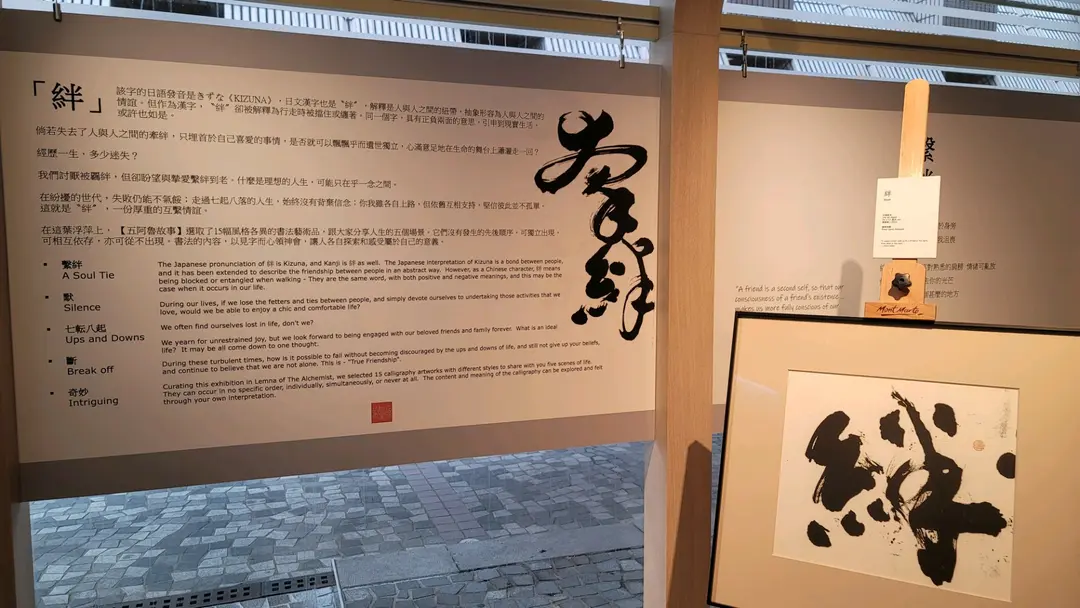 「絆」
該字的日語發音是きずな《KIZUNA》，日文漢字也是“絆”，解釋是人與人之間的紐帶，抽象形容為人與人之間的
情誼。但作為漢字，“絆”卻被解釋為行走時被擋住或纏著。同一個字，具有正負兩面的意思，引申到現實生活，
或許也如是。
倘若失去了人與人之間的牽絆，只埋首於自己喜愛的事情，是否就可以飄飄乎而遺世獨立，心滿意足地在生命的舞台上瀟灑走一回？
經歷一生，多少迷失？
我們討厭被羈絆，但卻盼望與摯愛繫絆到老。什麼是理想的人生，可能只在乎一念之間。
在紛擾的世代，失敗仍能不氣餒；走過七起八落的人生，始終沒有背棄信念；你我雖各自上路，但依舊互相支持，堅信彼此並不孤單。
這就是“絆”，一份厚重的互繫情誼。
在這葉浮萍上，【五阿魯故事】選取了15幅風格各異的書法藝術品，跟大家分享人生的五個場景。它們沒有發生的先後順序，可獨立出現，
可相互依存，亦可從不出現。書法的內容，以見字而心領神會，讓人各自探索和感受屬於自己的意義。
• 繫絆
A Soul Tie
• 獸
Silence
• 七転八起
Ups and Downs
• 斷
Break off
• 奇妙
Intriguing
The Japanese pronunciation of 絆 is Kizuna, and Kanji is 絆 as well. The Japanese interpretation of Kizuna is a bond between people,
and it has been extended to describe the friendship between people in an abstract way. However, as a Chinese character, 絆 means
being blocked or entangled when walking - They are the same word, with both positive and negative meanings, and this may be the
case when it occurs in our life.
During our lives, if we lose the fetters and ties between people, and simply devote ourselves to undertaking those activities that we
love, would we be able to enjoy a chic and comfortable life?
We often find ourselves lost in life, don't we?
We yearn for unrestrained joy, but we look forward to being engaged with our beloved friends and family forever. What is an ideal
life? It may be all come down to one thought.
During these turbulent times, how is it possible to fail without becoming discouraged by the ups and downs of life, and still not give up your beliefs,
and continue to believe that we are not alone. This is - "True Friendship".
Curating this exhibition in Lemna of The Alchemist, we selected 15 calligraphy artworks with different styles to share with you five scenes of life.
They can occur in no specific order, individually, simultaneously, or never at all. The content and meaning of the calligraphy can be explored and felt
through your own interpretation.
牽絆
繫
絆
"A friend is a second self, so that our
consciousness of a friend's existence...
makes us more fully conscious of our
絆
Mont Marte
絆